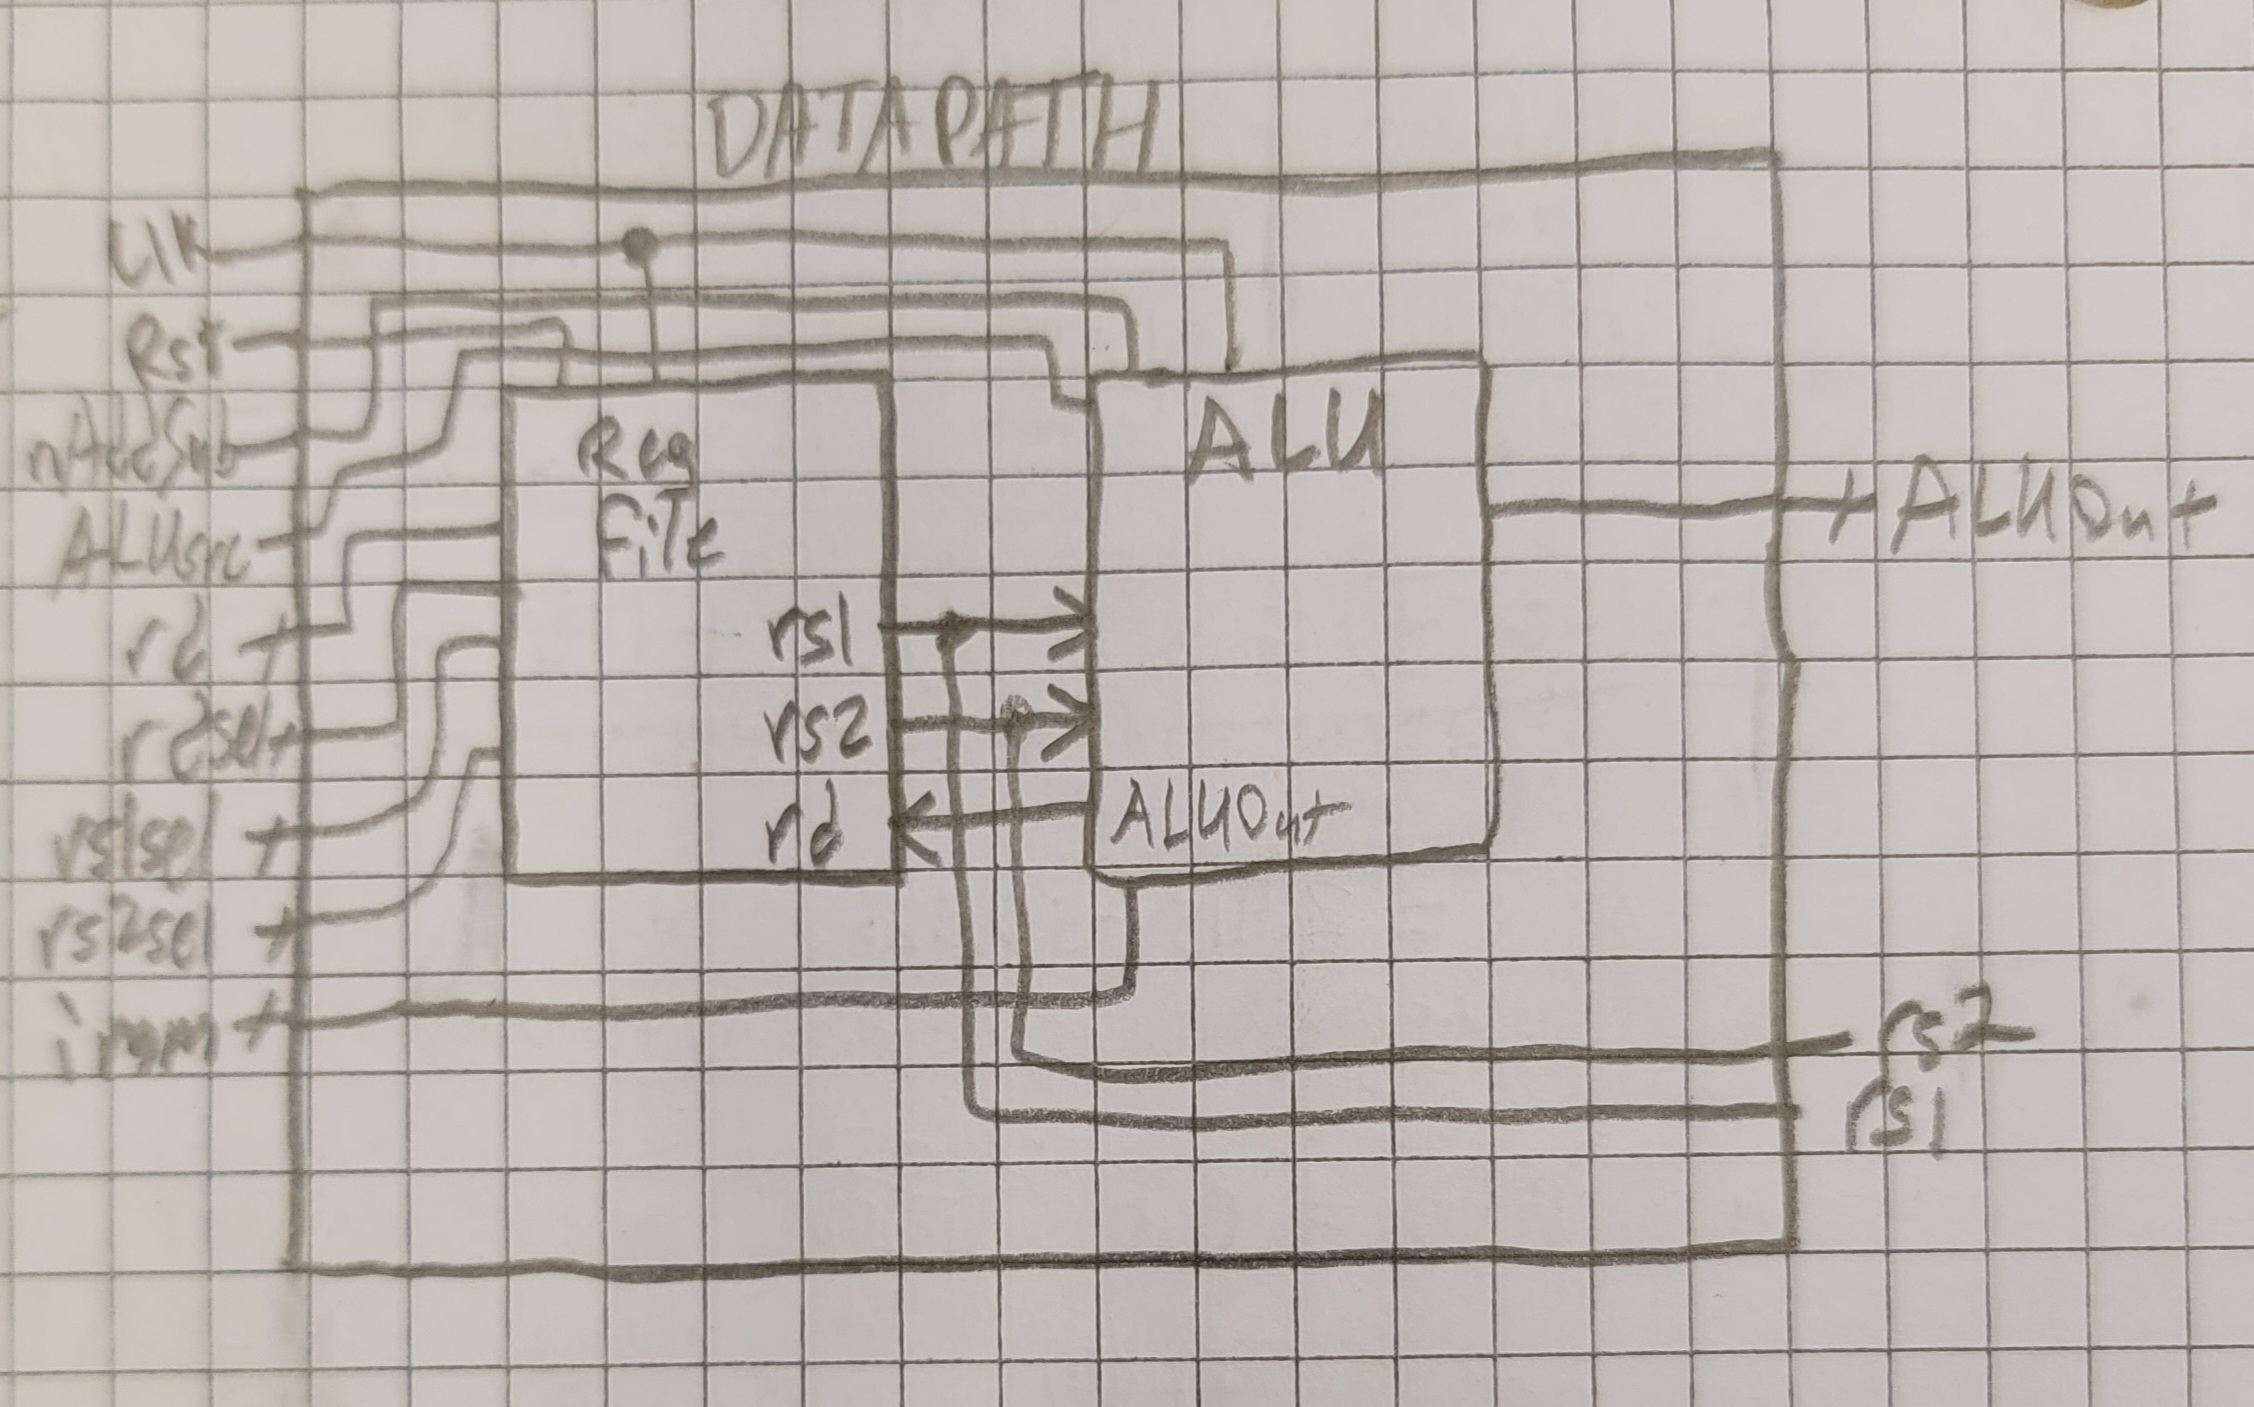 DATAPATH
Clk
Rst
nAddSub
ALUsrc
rd
rdsel
rs1sel
rs2sel
imm
Reg
File
rs1
rs2
rd
ALU
ALUOut
ALUOut
rs2
rs1